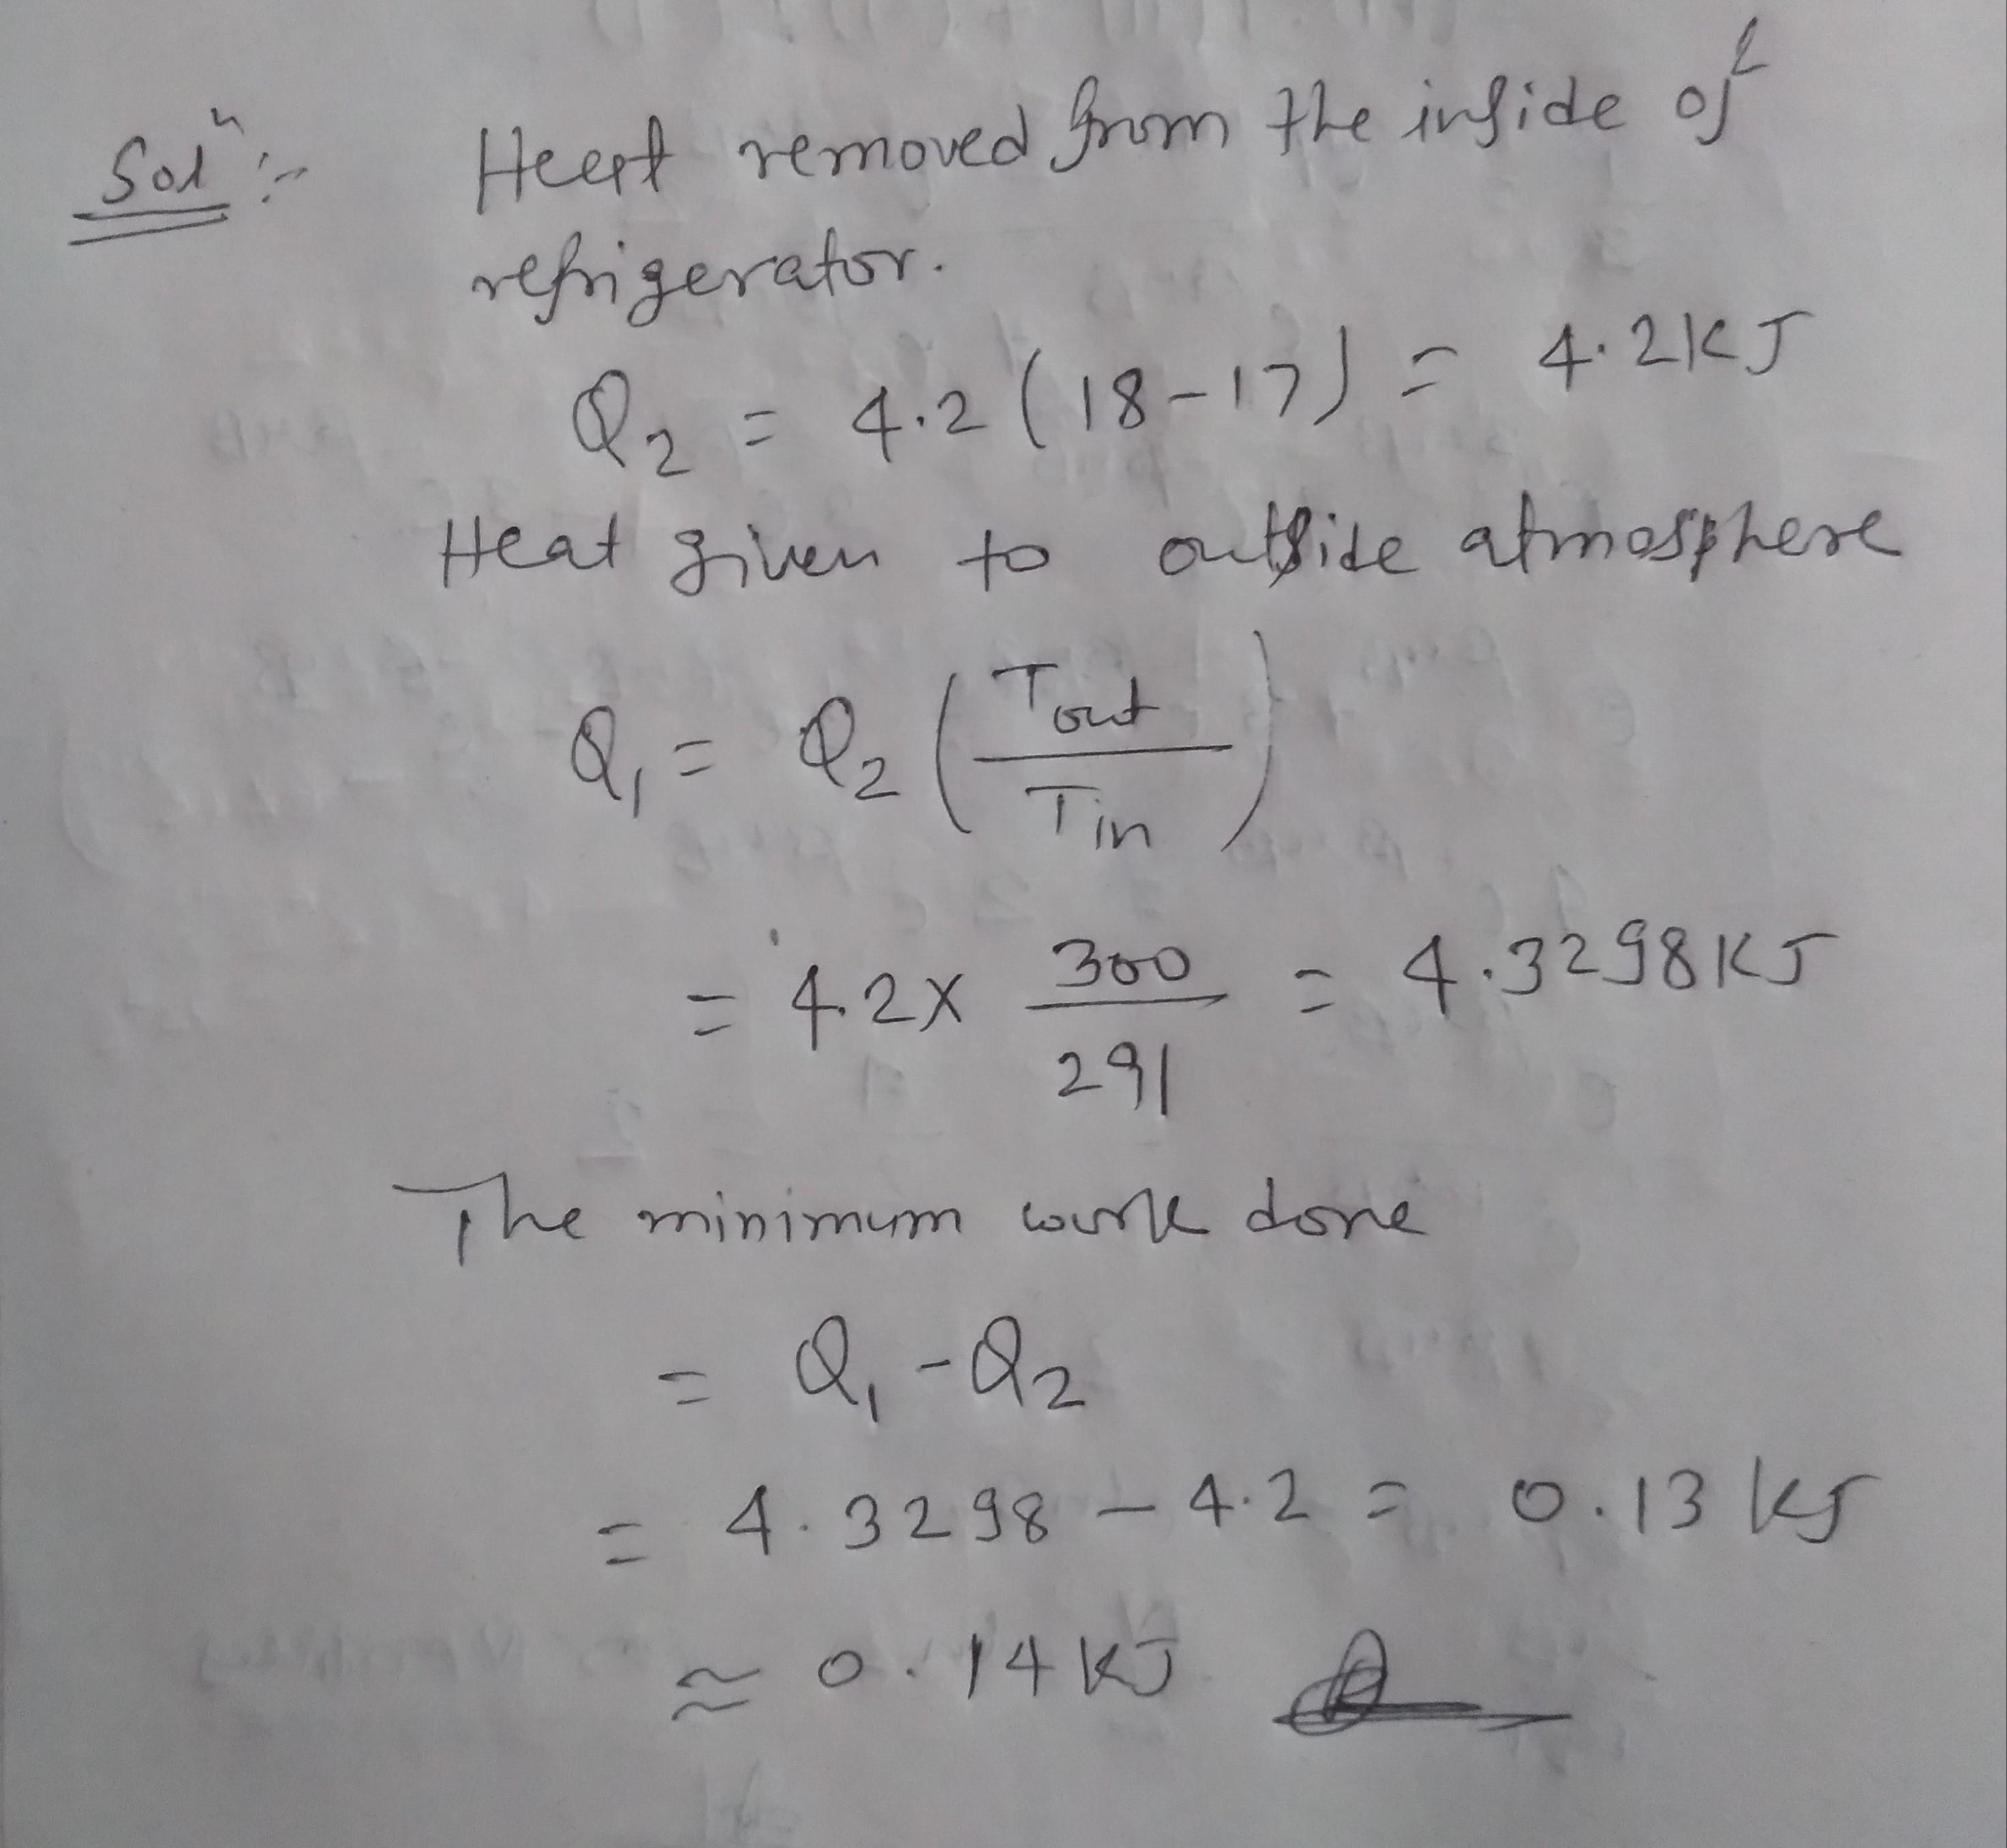 Solⁿ :- Heat removed from the inside of
refrigerator.
Q₂ = 4.2 (18-17) = 4.2 KJ
Heat given to outside atmosphere
Q₁ = Q₂ (Tout / Tin)
= 4.2 × 300/291 = 4.3298 KJ
The minimum work done
= Q₁ - Q₂
= 4.3298 - 4.2 = 0.13 KJ
≈ 0.14 KJ